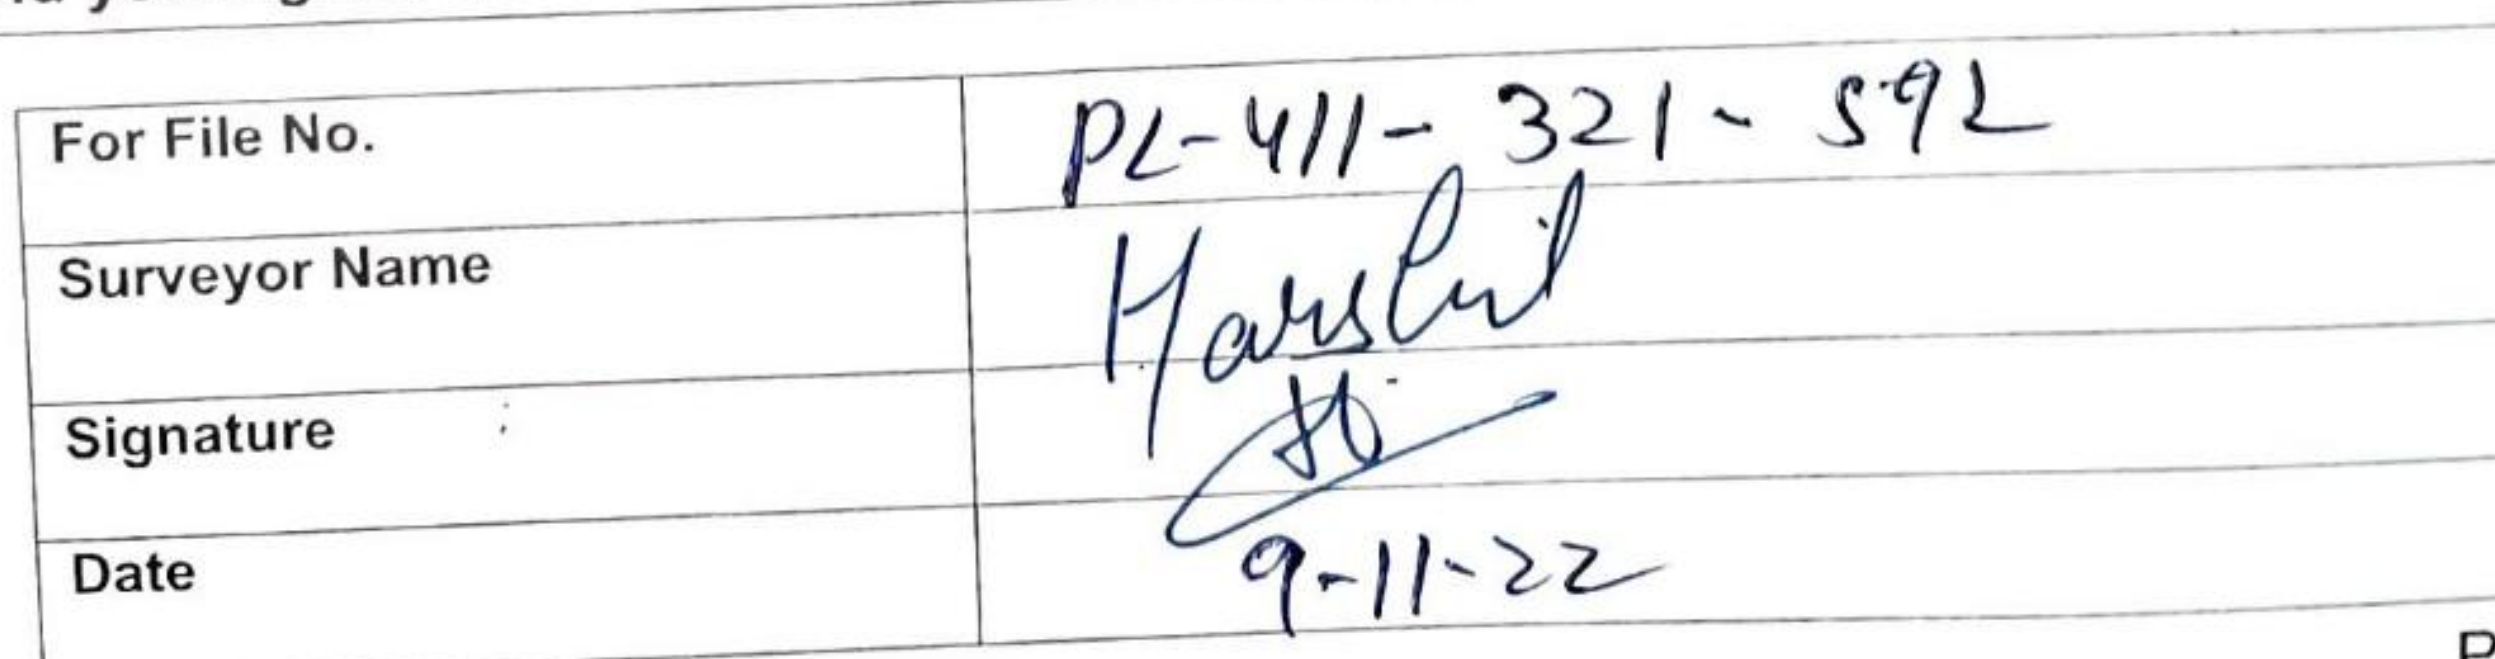 For File No. PL-411-321-592
Surveyor Name Harshit
Signature
Date 9-11-22